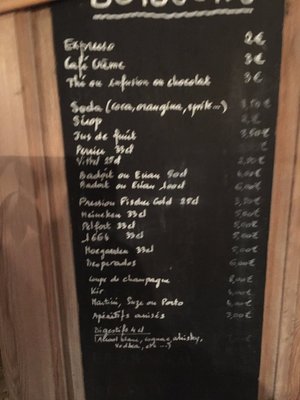 BOISSONS
Expresso 2€
Café Crème 3€
Thé ou infusion ou chocolat 3€
Soda (coca, orangina, sprite...) 3,50€
Sirop 2€
Jus de fruit 3,50€
Perrier 33cl
Vittel 25cl
Badoit ou Evian 50cl
Badoit ou Evian 100cl 6,00€
Pression 25cl
Heineken 33cl 5,00€
Pelfort 33cl 5,00€
1664 33cl 5,00€
Hoegarden 33cl 5,00€
Desperados 6,00€
Coupe de champagne 8,00€
Kir
Martini, Suze ou Porto
Apéritifs anisés 3,00€
Digestifs 4cl
(Alcool blanc, cognac, whisky,
vodka, etc...)